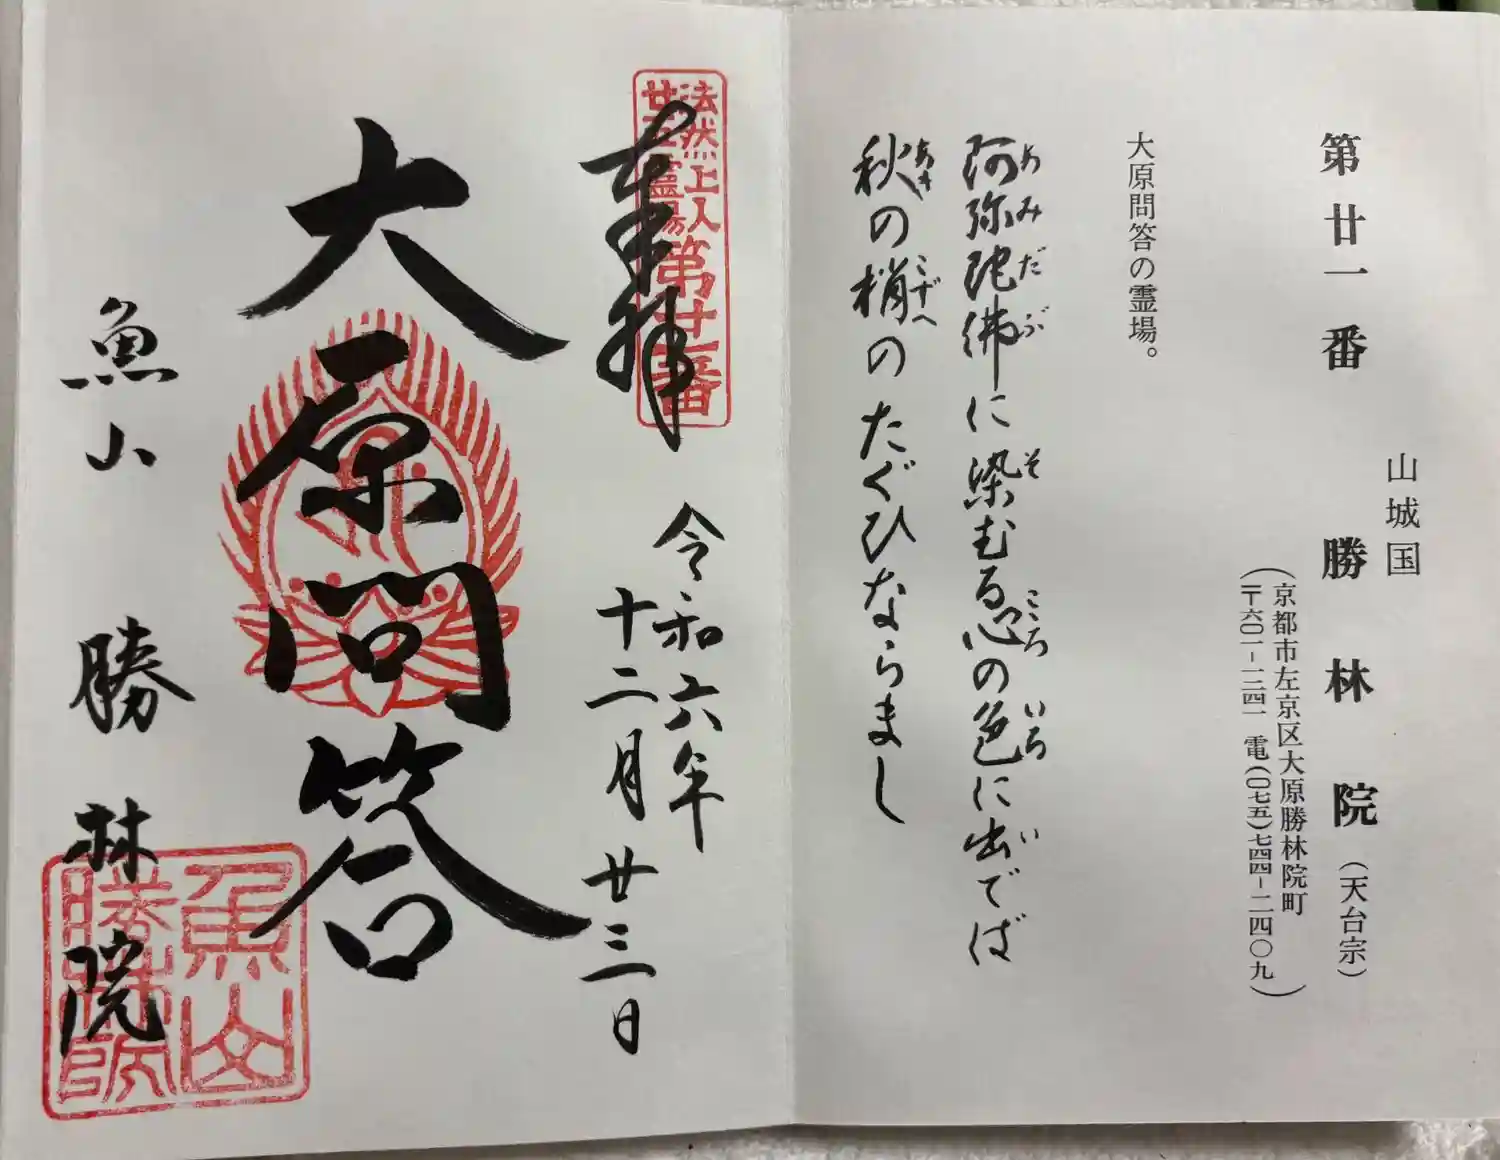 山城国
第廿一番 勝林院(天台宗)
(京都市左京区大原勝林院町
〒六〇一-一二四一 電(〇七五)七四四-二四〇九)
大原問答の霊場。
阿弥陀佛に染むる心の色に出でば
あみだぶ そ こころ いろ い
秋の梢のたぐひならまし
あき こずへ
法然上人
廿五霊場
第廿一番
奉拝
令和六年
十二月廿三日
大原問答
魚山 勝林院
魚山
勝林院